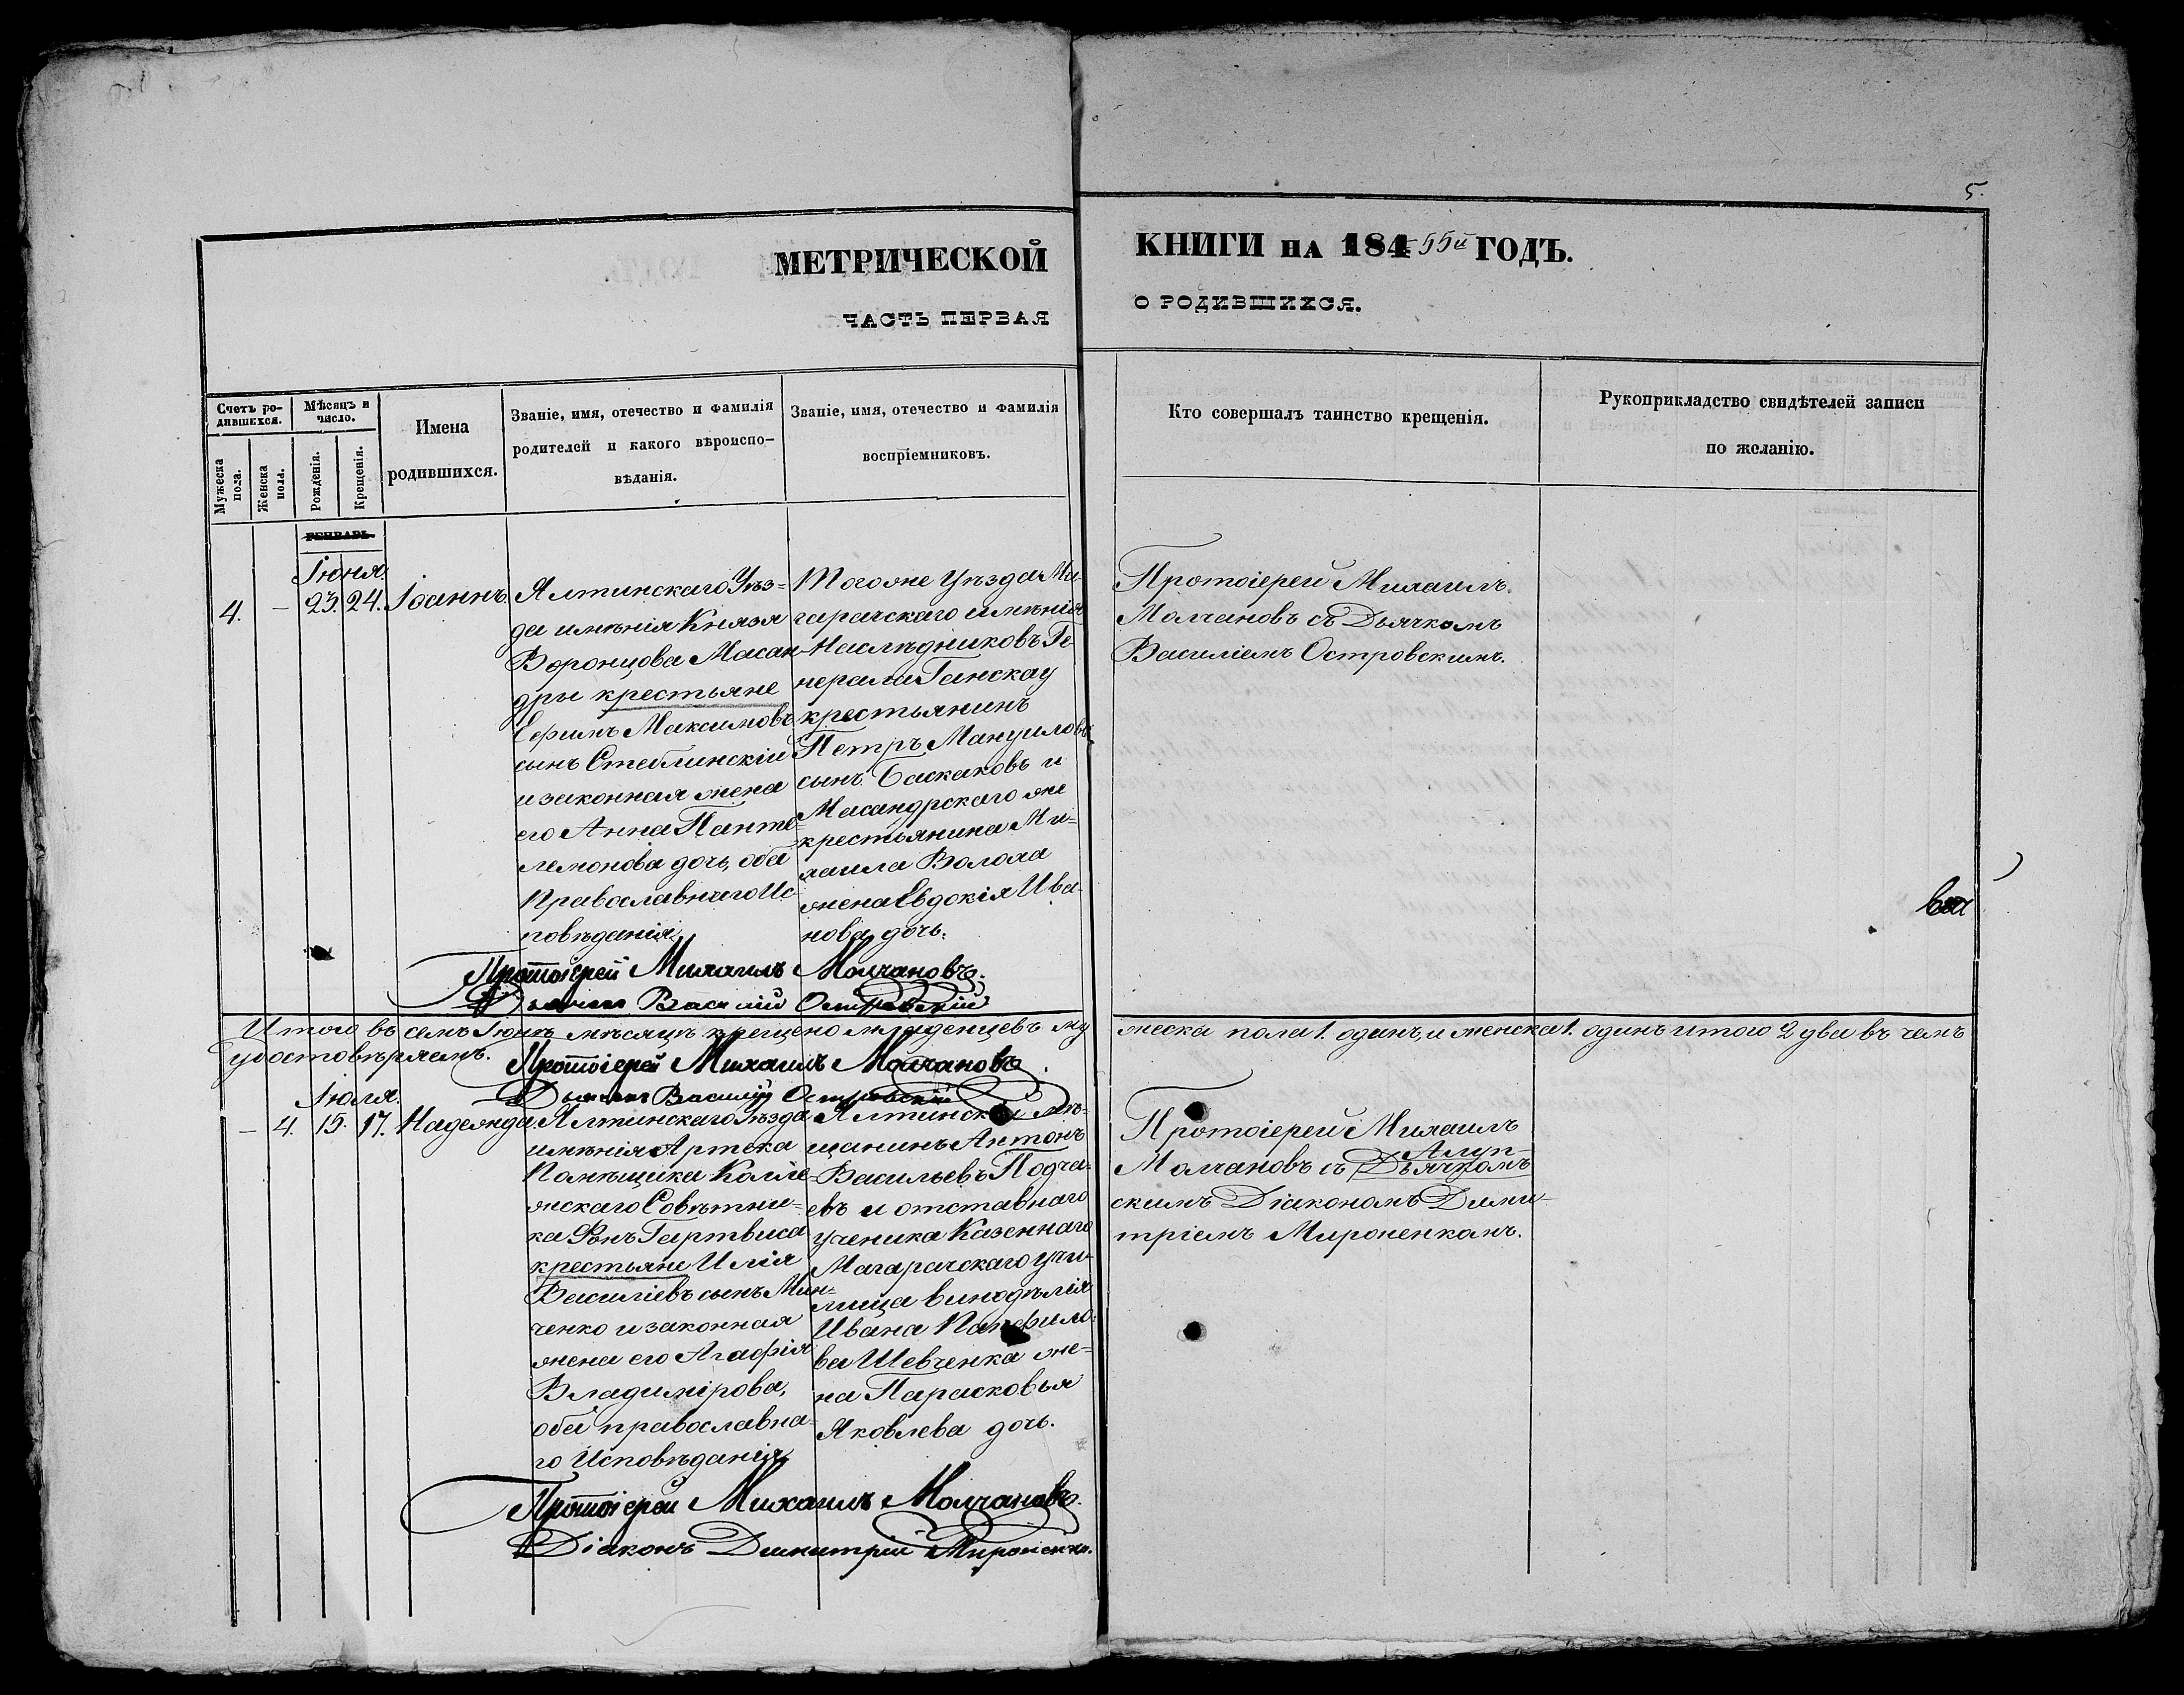 5.
МЕТРИЧЕСКОЙ КНИГИ НА 184 55й ГОДЪ.
ЧАСТЬ ПЕРВАЯ О РОДИВШИХСЯ.
Счетъ ро-
дившихся.
Мужеска пола.
Женска пола.
Мѣсяцъ и
число.
Рожденія.
Крещенія.
Имена
родившихся.
Званіе, имя, отечество и фамилія
родителей и какого вѣроиспо-
вѣданія.
Званіе, имя, отечество и фамилія
воспріемниковъ.
Кто совершалъ таинство крещенія.
Рукоприкладство свидѣтелей записи
по желанію.
ГЕНВАРЬ
Іюня.
4. – 23. 24. Іоаннъ.
Ялтинскаго Уѣз=
да имѣнія Князя
Воронцова Масан
дры крестьяне
Ефимъ Максимовъ
сынъ Стеблинскій
и законная жена
его Анна Панте=
лемонова дочь, оба
Православнаго Ис-
повѣданія
Тогоже Уѣзда Ма-
гарачскаго имѣнія
Наслѣдниковъ Ге-
нерала Ганскау
крестьянинъ
Петръ Мануиловъ
сынъ Баскаковъ и
Масандрскаго же
крестьянина Ми=
хаила Волоха
жена Евдокія Ива-
нова дочь.
Протоіерей Михаилъ
Молчановъ съ Дьячкомъ
Василіемъ Островскимъ.
Протоіерей Михаилъ Молчановъ.
Дьячекъ Василій Островскій
Итого въ семъ Іюнѣ мѣсяцѣ крещено младенцевъ му жеска пола 1. одинъ, и женска 1. одинъ итого 2 два въ чемъ
удостовѣряемъ.
Протоіерей Михаилъ Молчановъ
Дьячекъ Василій Островскій
Іюля.
– 4. 15. 17. Надежда.
Ялтинскаго Уѣзда
имѣнія Артека
Помѣщика Колле=
жскаго Совѣтни=
ка Фонъ Гартвиса
крестьяне Илія
Василіевъ сынъ Мин=
ченко и законная
жена его Агафія
Владимірова,
оба православна=
го Исповѣданія
Ялтинскій мѣ-
щанинъ Антонъ
Васильевъ Подга-
евъ и отставнаго
ученика Казеннаго
Магарачскаго учи-
лища винодѣлія
Ивана Панфило=
ва Шевченка же-
на Парасковья
Яковлева дочь.
Протоіерей Михаилъ
Молчановъ съ Дьячкомъ Алуп-
скимъ Діакономъ Дими-
тріемъ Мироненкомъ.
Протоіерей Михаилъ Молчановъ.
Діаконъ Димитрій Мироненко.